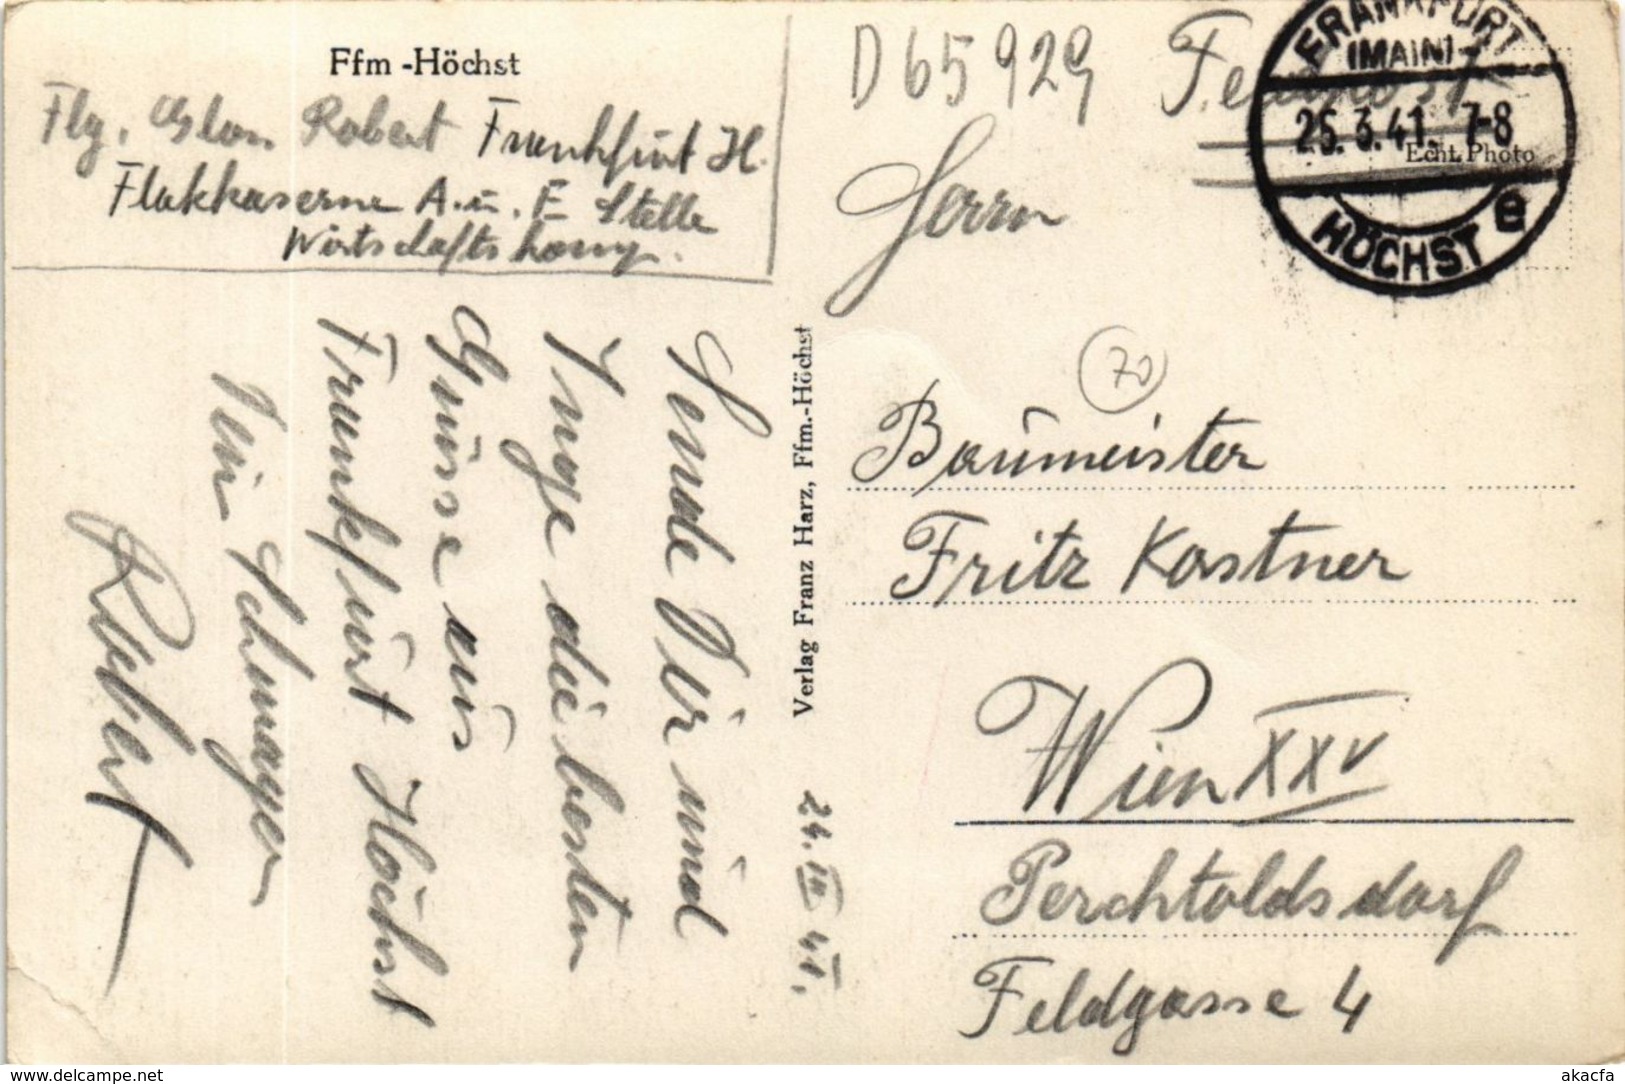 Ffm -Höchst
Flg. Robert Frankfurt H.
Flakkaserne A.u. E Stelle
Wirtschaftskomp.
D 65929
Feldpost
FRANKFURT
(MAIN)
25.3.41. 7-8
HÖCHST e
Echt. Photo
Herrn
70
Baumeister
Fritz Kastner
Wien XXV
Perchtoldsdorf
Feldgasse 4
Verlag Franz Harz, Ffm.-Höchst
24. III 41.
Sende Dir und
Inge die besten
Grüsse aus
Frankfurt Höchst
Dein Schwager
Robert
delcampe.net
akacfa